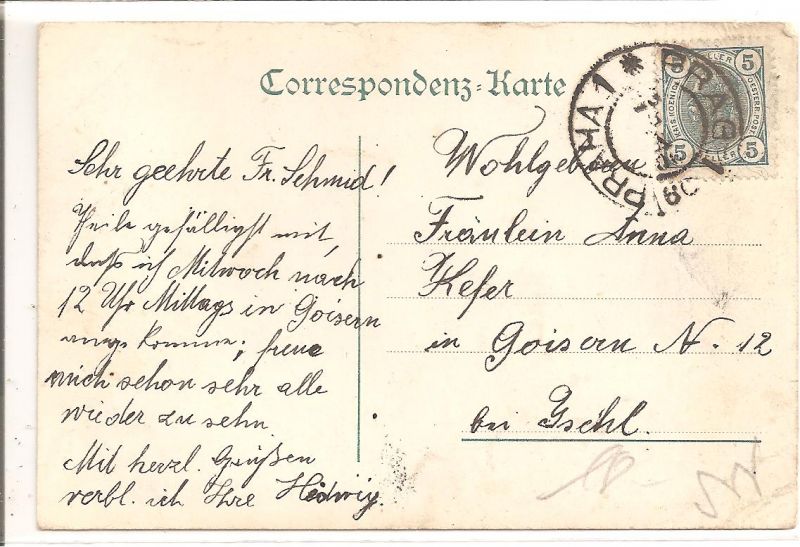 Correspondenz-Karte
Sehr geehrte Fr. Schmid!
Theile gefälligst mit,
daß ich Mitwoch nach
12 Uhr Mittags in Goisern
komme; freue
mich schon sehr alle
wieder zu sehn
Mit herzl. Grüßen
verbl. ich Ihre Hedwig.
PRAHA 1 * PRAG
5 5
5 5
KAIS. KOENIGL. OESTERR. POST
Wohlgeboren
Fräulein Anna
Kefer
in Goisern N. 12
bei Ischl.